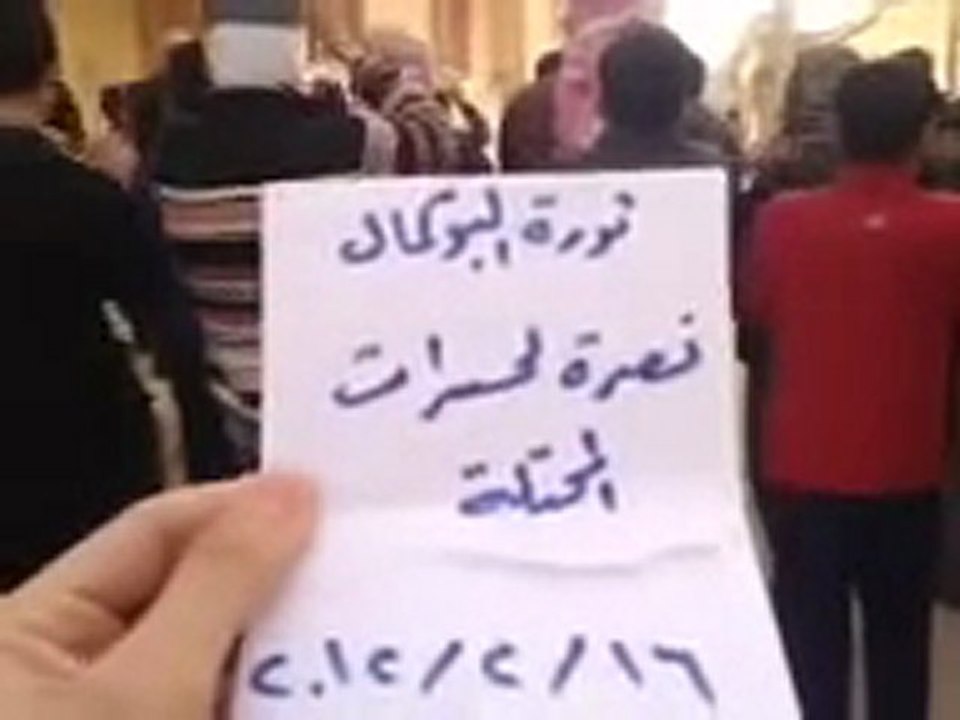 ثورة البوكمال
نصرة لحسرات
المحتلة
١٦/٢/٢٠١٢